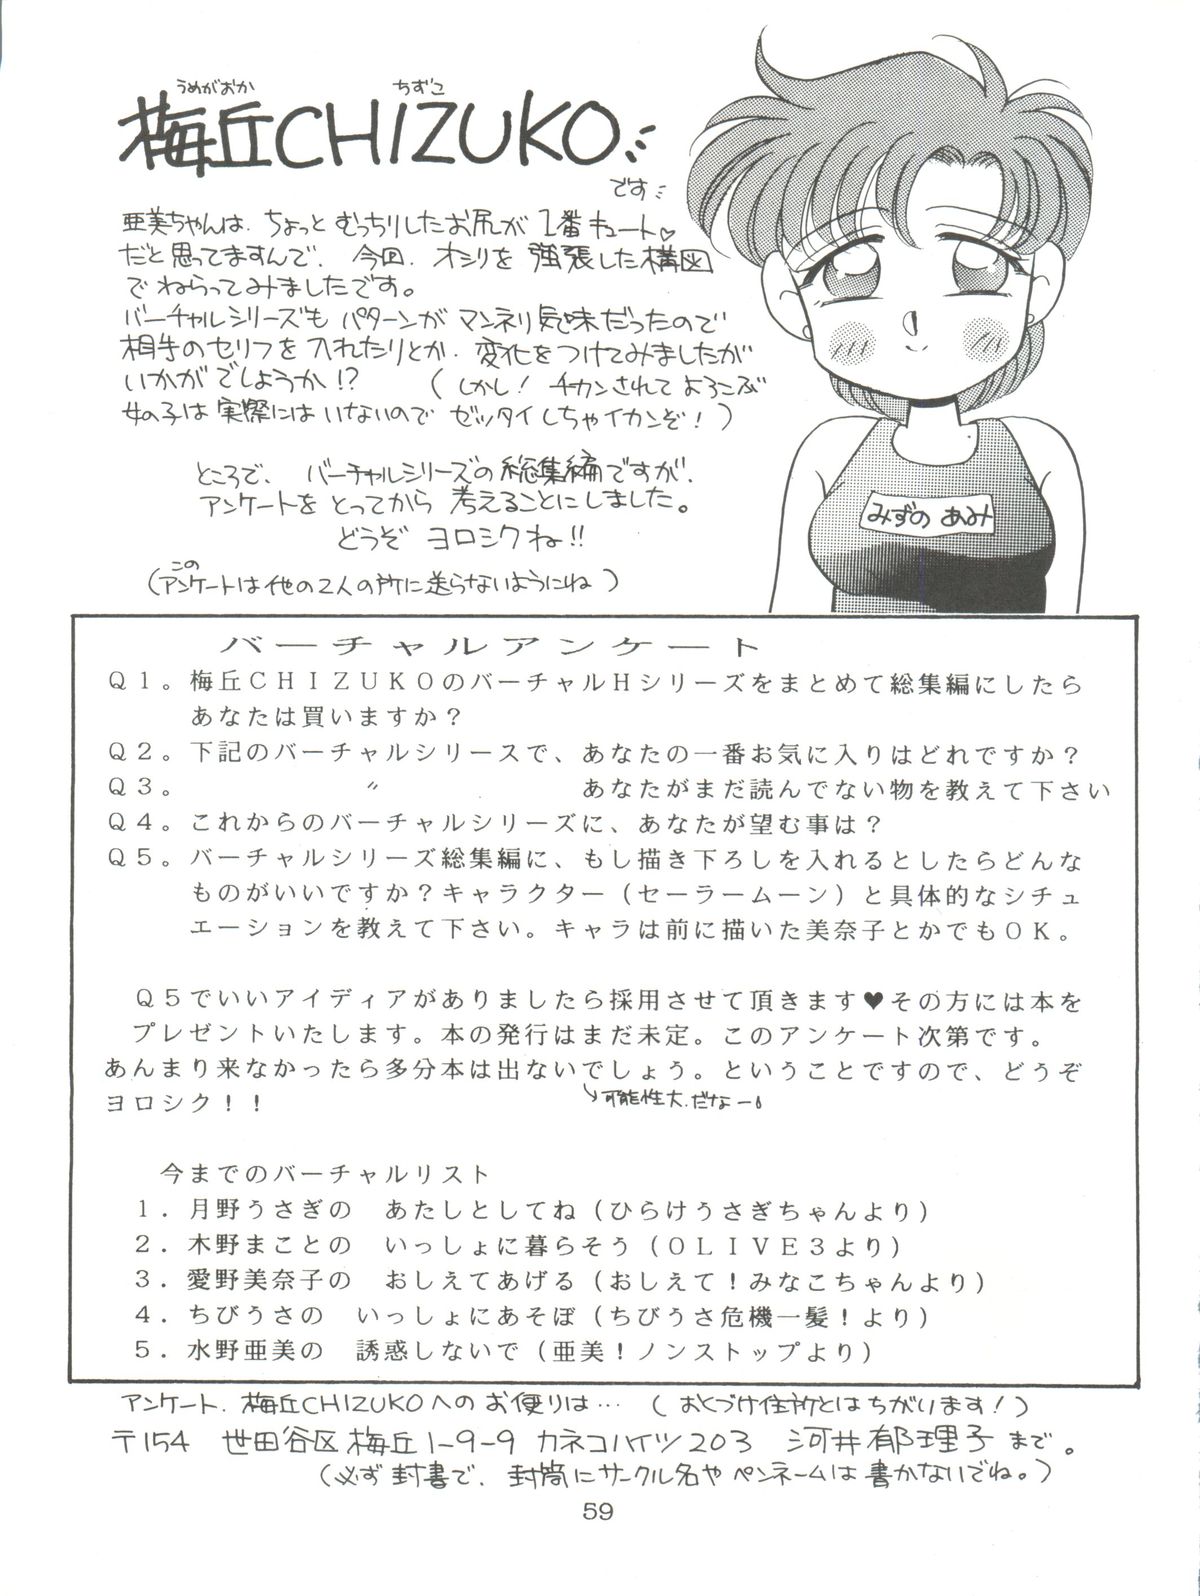 うめがおか　ちずこ
梅丘CHIZUKO
です
亜美ちゃんは、ちょっとむっちりしたお尻が1番キュート♡
だと思ってますんで、今回、オシリを強張した構図
でねらってみましたです。
バーチャルシリーズもパターンがマンネリ気味だったので
相手のセリフを入れたりとか、変化をつけてみましたが
いかがでしょうか!?　(しかし！チカンされてよろこぶ
女の子は実際にはいないのでゼッタイしちゃイカンぞ！)
ところで、バーチャルシリーズの総集編ですが、
アンケートをとってから考えることにしました。
どうぞヨロシクね!!
(このアンケートは他の2人の所に送らないようにね)
みずの あみ
バーチャルアンケート
Q1。梅丘CHIZUKOのバーチャルHシリーズをまとめて総集編にしたら
あなたは買いますか？
Q2。下記のバーチャルシリースで、あなたの一番お気に入りはどれですか？
Q3。　〃　あなたがまだ読んでない物を教えて下さい
Q4。これからのバーチャルシリーズに、あなたが望む事は？
Q5。バーチャルシリーズ総集編に、もし描き下ろしを入れるとしたらどんな
ものがいいですか？キャラクター（セーラームーン）と具体的なシチュ
エーションを教えて下さい。キャラは前に描いた美奈子とかでもOK。
Q5でいいアイディアがありましたら採用させて頂きます♥その方には本を
プレゼントいたします。本の発行はまだ未定。このアンケート次第です。
あんまり来なかったら多分本は出ないでしょう。ということですので、どうぞ
ヨロシク！！
↘可能性大だなー
今までのバーチャルリスト
1．月野うさぎの　あたしとしてね（ひらけうさぎちゃんより）
2．木野まことの　いっしょに暮らそう（OLIVE3より）
3．愛野美奈子の　おしえてあげる（おしえて！みなこちゃんより）
4．ちびうさの　いっしょにあそぼ（ちびうさ危機一髪！より）
5．水野亜美の　誘惑しないで（亜美！ノンストップより）
アンケート、梅丘CHIZUKOへのお便りは…（おくづけ住所とはちがいます！）
〒154　世田谷区梅丘1-9-9 カネコハイツ203　河井郁理子まで。
（必ず封書で、封筒にサークル名やペンネームは書かないでね。）
59